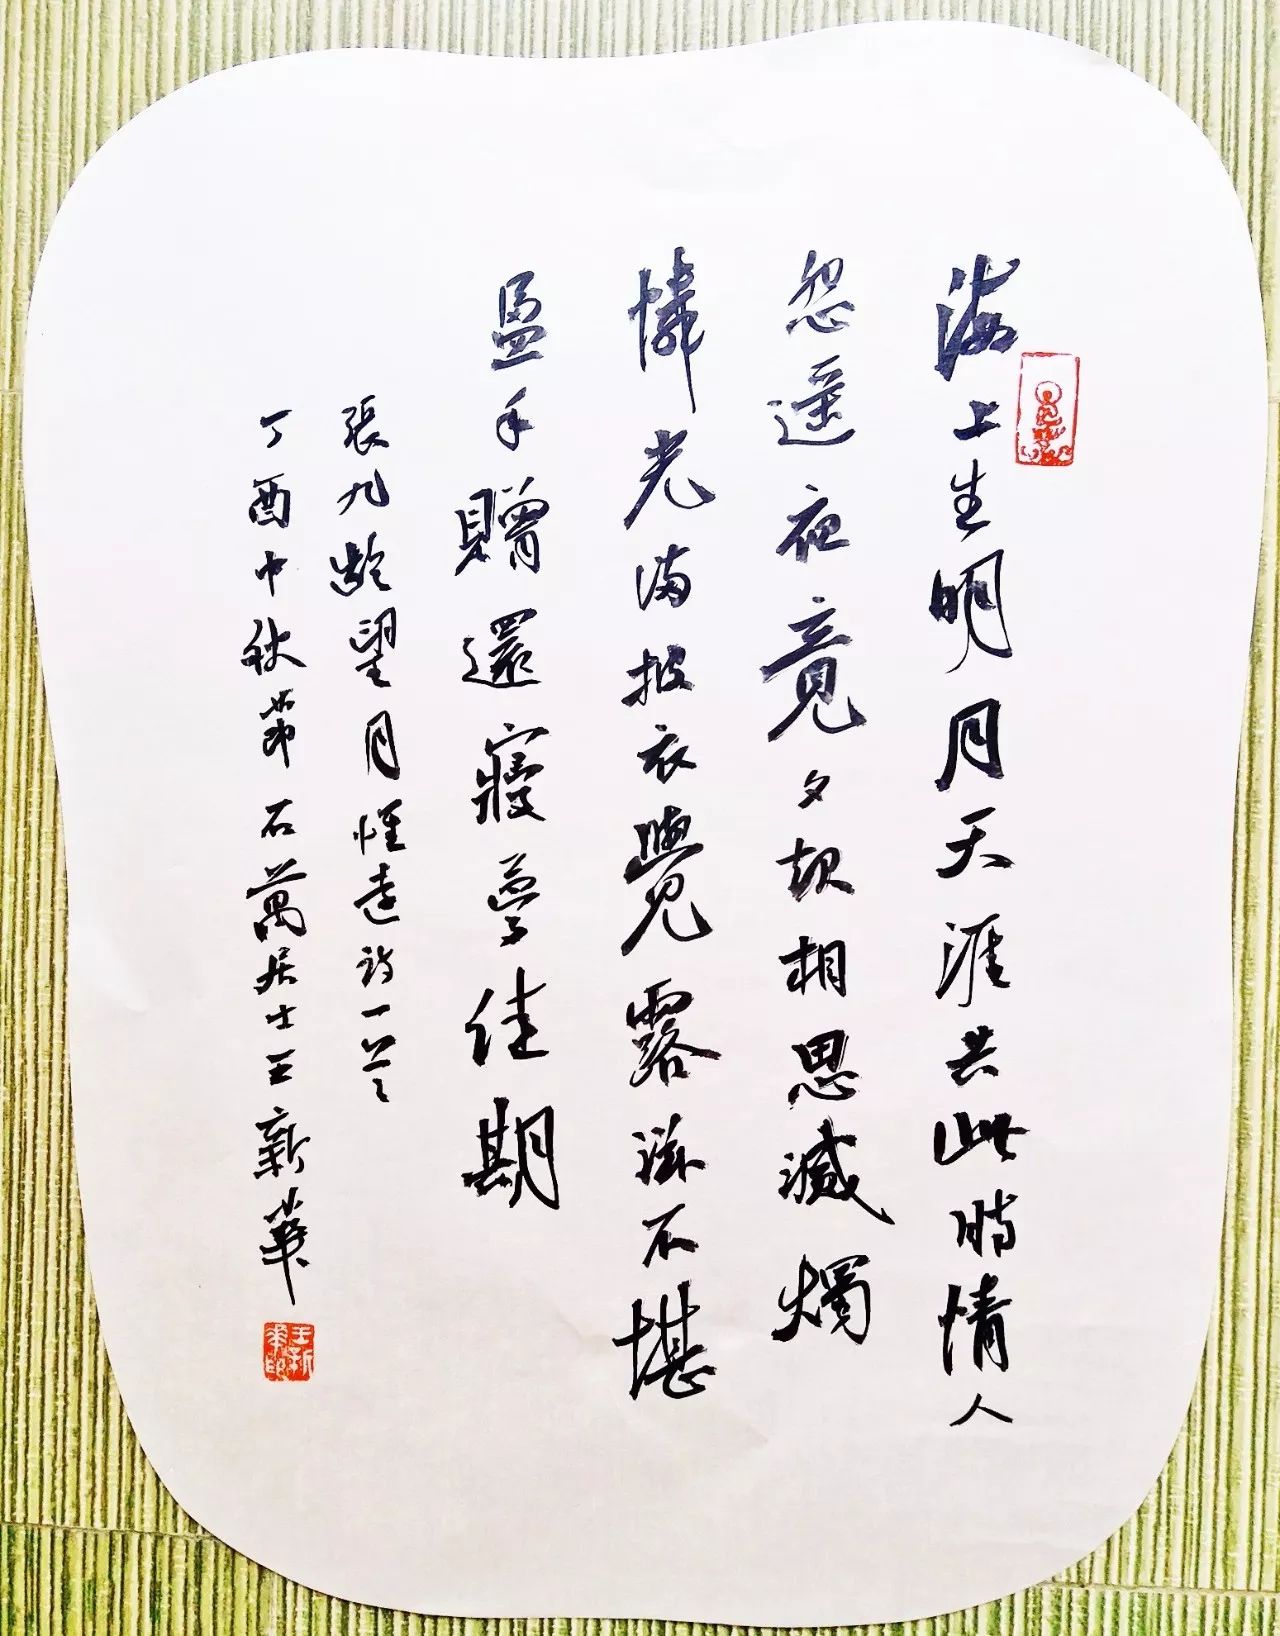 海上生明月天涯共此時情人
怨遥夜竟夕起相思滅燭
憐光滿披衣覺露滋不堪
盈手贈還寢夢佳期
張九齡望月懷遠詩一首
丁酉中秋節石萬居士王新華
王新華印